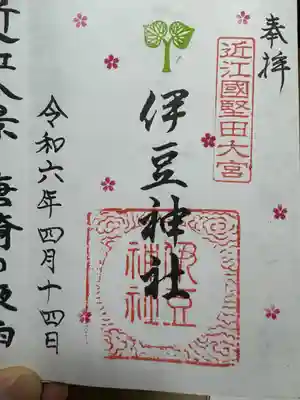 奉拝
近江國堅田大宮
伊豆神社
伊豆
神社
令和六年四月十四日
近江八景
唐崎の夜雨